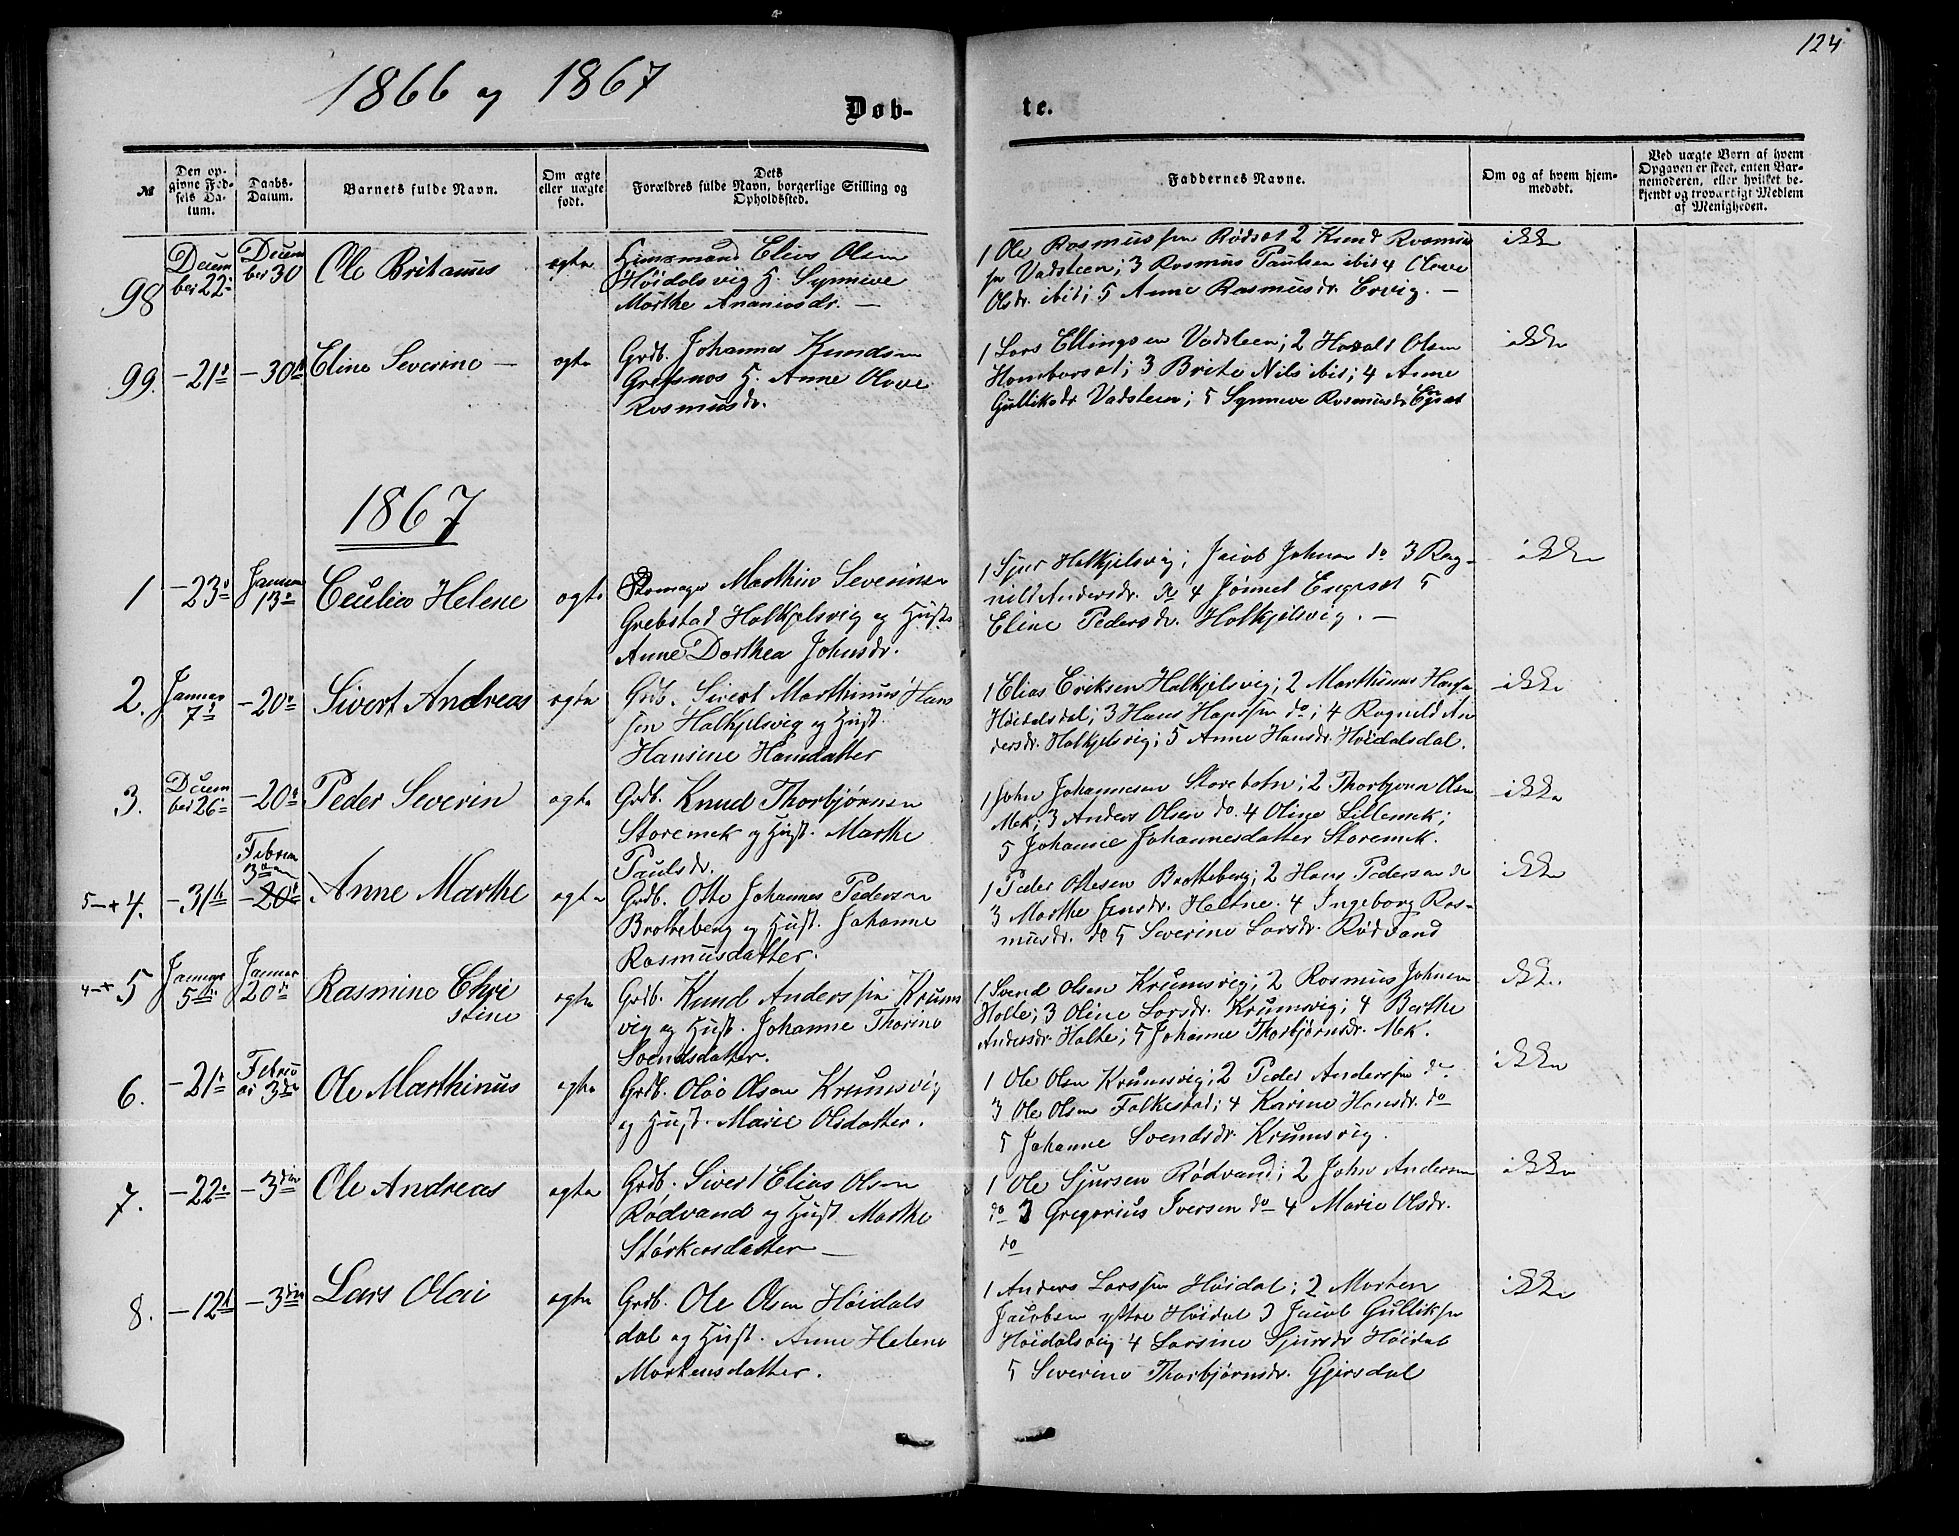 124
1866 og 1867
Døb-
te.
№
Den op-
givne Fød-
sels Da-
tum.
Daabs-
Datum.
Barnets fulde Navn.
Om ægte
eller uægte
født.
Dets
Forældres fulde Navn, borgerlige Stilling og
Opholdssted.
Faddernes Navne.
Om og af hvem hjem-
medøbt.
Ved uægte Børn af hvem
Opgaven er skeet, enten Bar-
nemoderen, eller hvilket be-
kjendt og troværdigt Medlem
af Menigheden.
98
Decem
ber 22
Decem
ber 30
Ole Britanus
ægte
Huusmand Elias Olsen
Høidalsvig H. Synneve
Marthe Ananiasdr. —
1 Ole Rasmussen Rødset 2 Knud Rasmus
sn Vadsteen; 3 Rasmus Paulsen ibid 4 Olave
Olsdr. ibid; 5 Anne Rasmusdr. Ervig. —
ikke
99.
– 21
– 30
Eline Severine —
ægte
Grdb. Johannes Knudsen
Grefsnes H. Anne Olave
Rasmusdr.
1 Lars Ellingsen Vadsteen; 2 Harald Olsen
Homborset; 3 Brite Nils ibid; 4 Anne
Gulliksdr Vadsteen; 5 Synneve Rasmusdr
ikke
1867
1
– 23
Januar
13
Cecilia Helene
ægte
Skomager Marthin Severinsen
Grebstad Halkjelsvig og Hust.
Anne Dorthea Johnsdr.
1 Sjur Halkjelsvig; Jacob Johnsen do 3 Rag-
nild Andersdr. do 4 Jønnet Engeset 5
Eline Pedersdr. Halkjelsvig. —
ikke
2.
Januar
7
– 20
Sivert Andreas
ægte
Grdb. Sivert Marthinus Hans
sen Halkjelsvig og Hust.
Hansine Hansdatter
1 Elias Eriksen Halkjelsvig; 2 Marthinus Hans
Høidalsdal; 3 Hans Hanssen do; 4 Ragnild An
dersdr. Halkjelsvig; 5 Anne Hansdr. Høidalsdal.
ikke
3.
Decem
ber 26
– 20
Peder Severin
ægte
Grdb. Knud Thorbjørnsen
Storemek og Hust. Marthe
Paulsdr.
1 John Johannesen Storeholm; 2 Thorbjørn Olsen
Mek; 3 Anders Olsen do. 4 Oline Lillemek;
5 Johanne Johannesdatter Storemek.
ikke
5–+ 4.
– 31
Februar
3
– 20
Anne Marthe
ægte
Grdb. Otte Johannes Pedersen
Brotteberg og Hust. Johanne
Rasmusdatter.
1 Peder Ottesen Brotteberg; 2 Hans Pedersen do
3 Marthe Jensdr. Heltne. 4 Ingeborg Ras-
musdr. do 5 Severine Larsdr. Rødvand
ikke
4–+ 5
Januar
5
Januar
20
Rasmine Chri
stine
ægte
Grdb. Knud Anderssen Krums
vig og Hust. Johanne Thorine
Svendsdatter.
1 Svend Olsen Krumsvig; 2 Rasmus Johnsen
Holte; 3 Oline Larsdr. Krumsvig; 4 Berthe
Andersdr. Holte; 5 Johanne Thorbjørnsdr. Mek.
ikke
6.
– 21
Febru
ar 3
Ole Marthinus
ægte
Grdb. Olav Olsen Krumsvig
og Hust. Marie Olsdatter.
1 Ole Olsen Krumsvig; 2 Peder Anderssen do
3 Ole Olsen Folkestad; 4 Karine Hansdr. do
5 Johanne Svendsdr. Krumsvig.
ikke
7.
– 22
– 3die
Ole Andreas
ægte
Grdb. Sivert Elias Olsen
Rødvand og Hust. Marthe
Størkersdatter —
1 Ole Sjursen Rødvand; 2 John Andersen
do 3 Gregorius Iversen do 4 Marie Olsdr.
do
ikke
8.
– 12
– 3die
Lars Olai
ægte
Grdb. Ole Olsen Høidals
dal og Hust. Anne Helene
Mortensdatter.
1 Anders Larssen Høidal; 2 Morten
Jacobsen ystre Høidal 3 Jacob Gulliksen
Høidalsvig 4 Larsine Sjursdr Høidal
5 Severine Thorbjørnsdr. Gjersdal
ikke